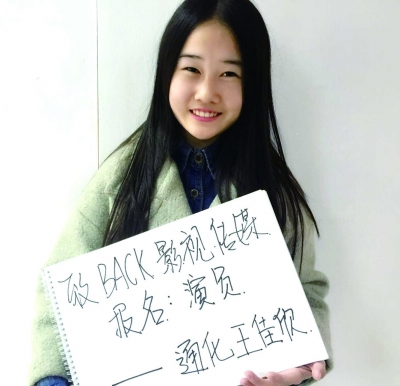 致BACK影视传媒
报名:演员.
——通化王佳欣.